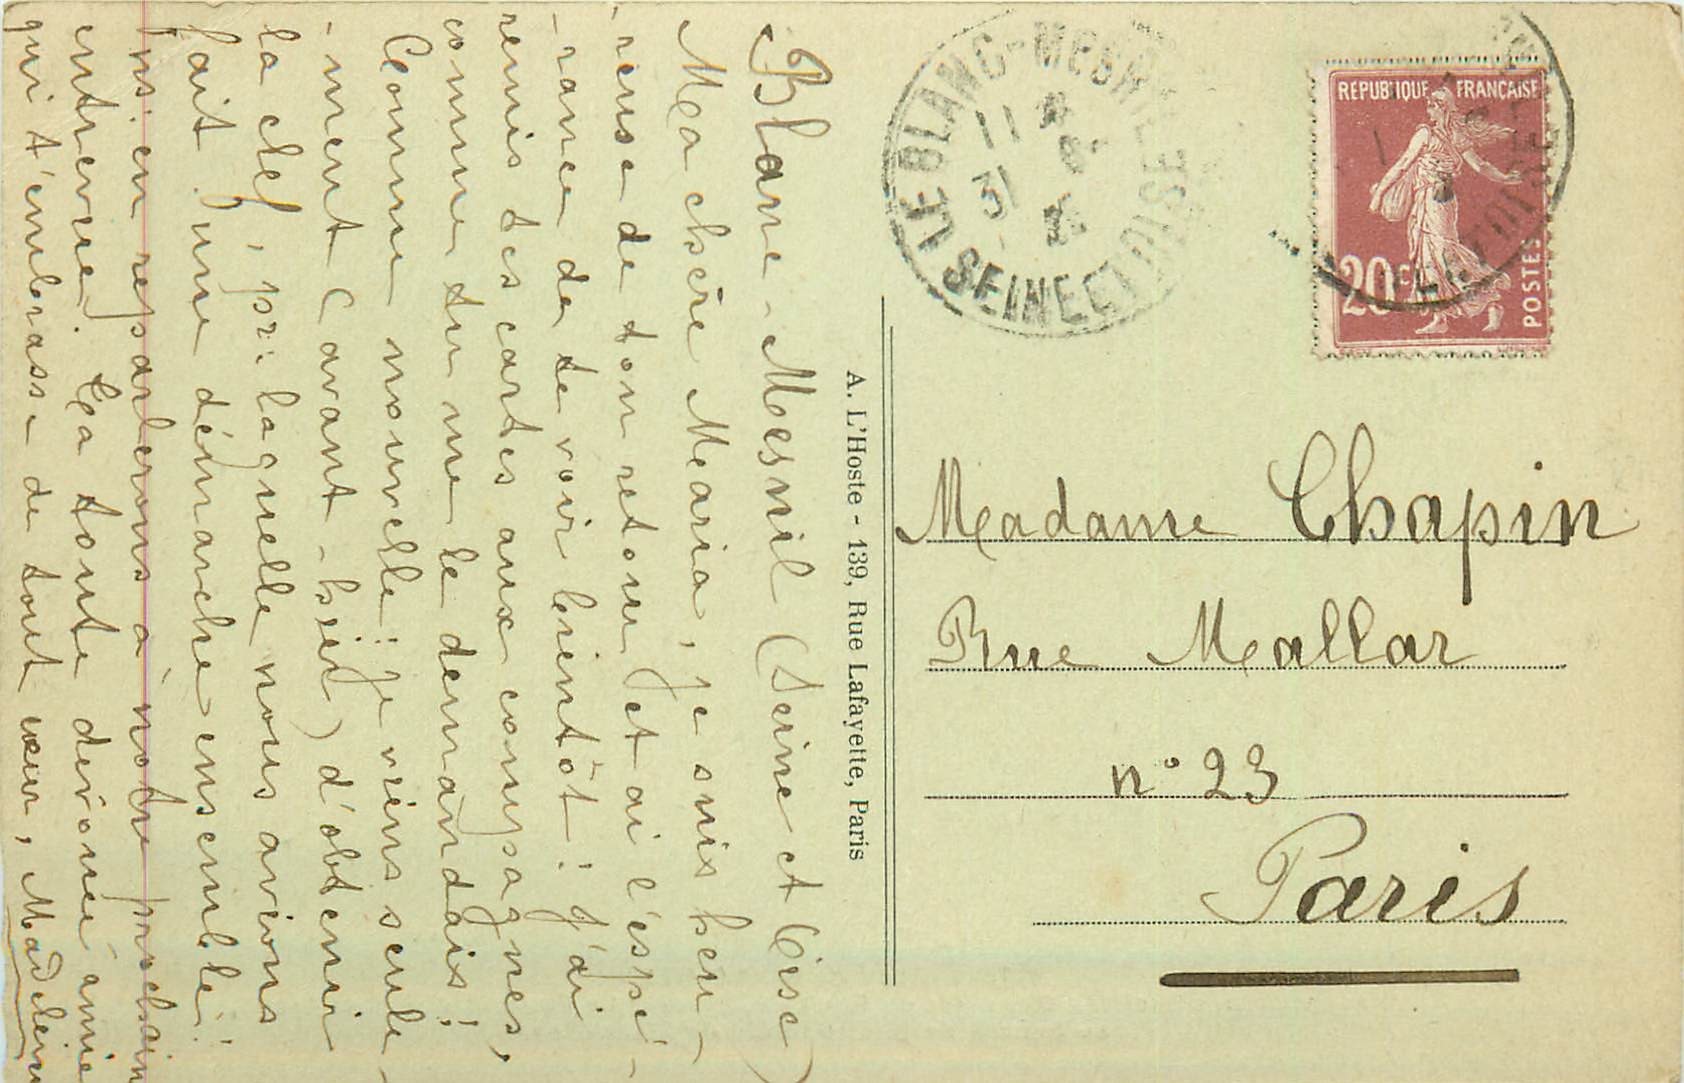 Blanc-Mesnil (Seine et Oise)
Ma chère Maria, je suis heu-
-reuse de ton retour, et ai l'espé-
-rance de te voir bientôt! J'ai
remis tes cartes aux compagnes,
comme tu me le demandais!
Comme nouvelle: je viens seule-
-ment (avant-hier) d'obtenir
la clef, pr: laquelle nous avions
fait une démarche ensemble!
ns: en reparlerons à notre prochaine
entrevue. Ta toute dévouée amie
qui t'embrasse de tout cœur, Madeleine
A. L'Hoste - 139, Rue Lafayette, Paris
LE BLANC-MESNIL
11
31
SEINE ET OISE
REPUBLIQUE FRANÇAISE
20c
POSTES
Madame Chapin
Rue Mallar
n° 23
Paris